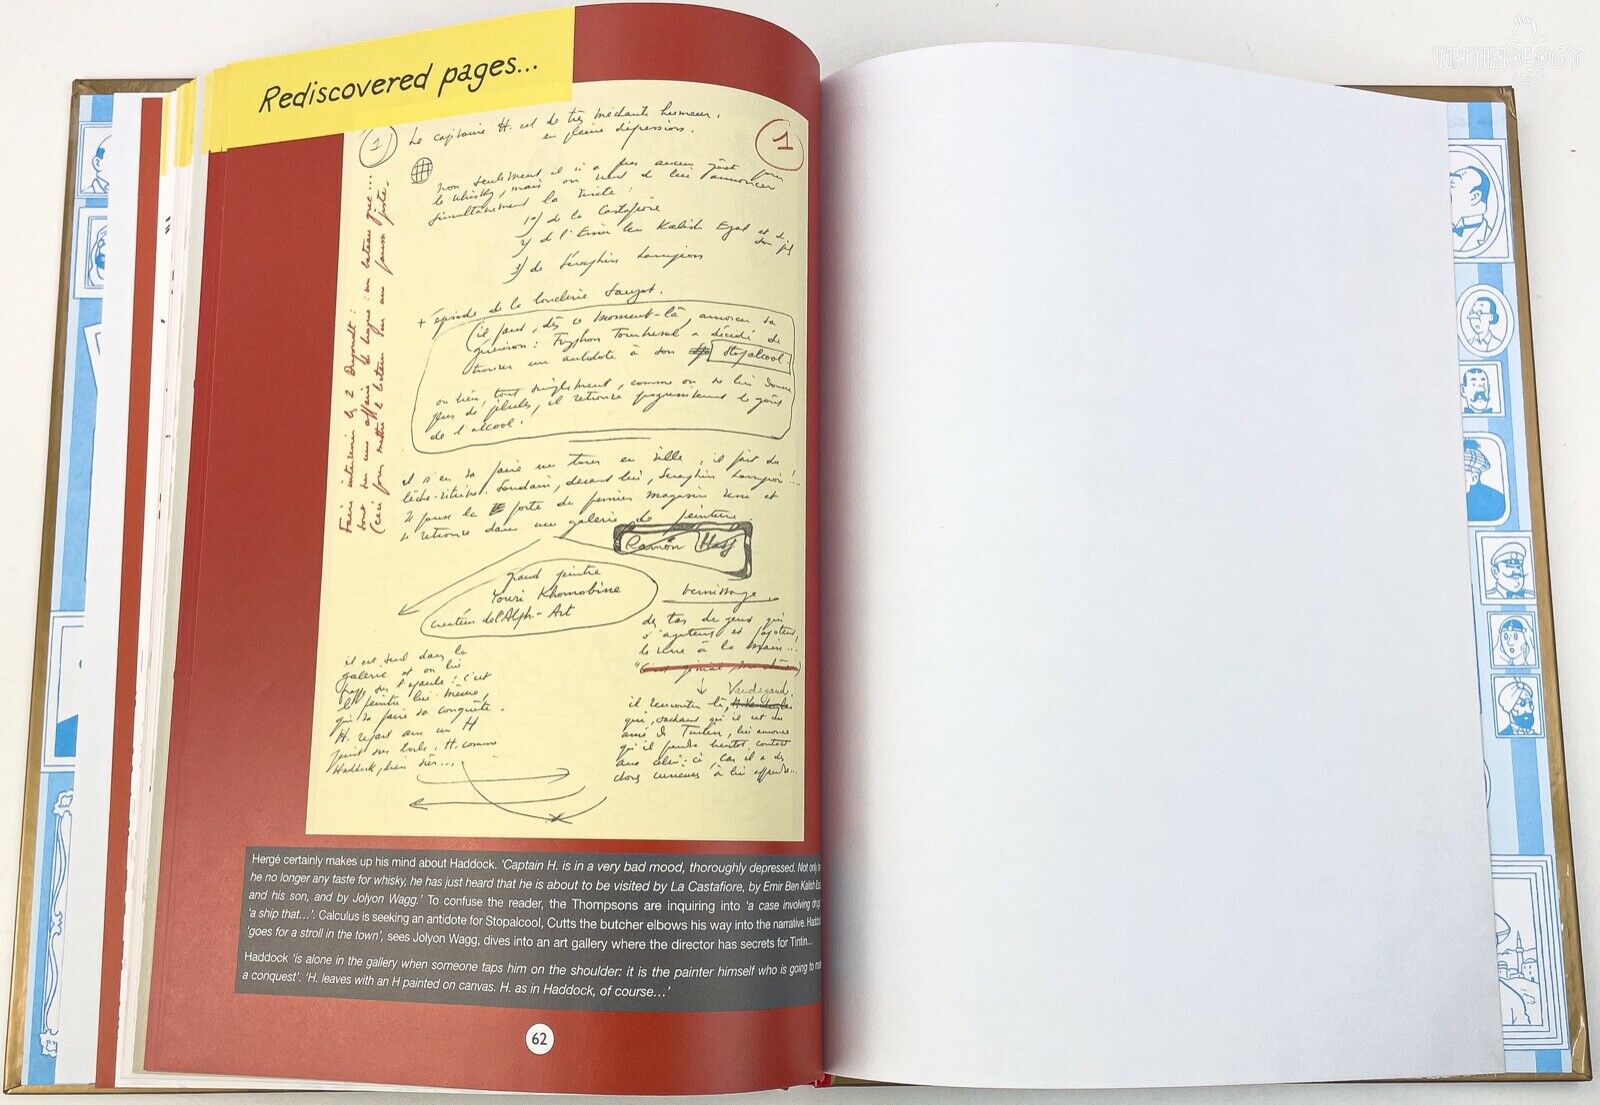 TINTINOLOGY
Rediscovered pages...
1
1
Le capitaine H. est de très méchante humeur,
en pleine dépression.
non seulement il n'a plus aucun goût pour
le whisky, mais on vient de lui annoncer
simultanément la visite :
1°/ de la Castafiore
2/ de l'Emir Ben Kalish Ezal et de son fils
3/ de Séraphin Lampion
+ épisode de la boucherie Sanzot.
(il faut, dès ce moment-là, amorcer sa
guérison : Tryphon Tournesol a décidé de
trouver un antidote à son Stopalcool
ou bien, tout simplement, comme on ne lui donne
plus de pilules, il retrouve progressivement le goût
de l'alcool.
Faire intervenir les 2 Dupondt :
sont sur une affaire de drogue : un bateau grec...
(ceci pour mettre le lecteur sur une fausse piste.
il s'en va faire un tour en ville, il fait du
lèche-vitrine. Soudain, devant lui, Séraphin Lampion !!
Il pousse la porte du premier magasin venu et
se retrouve dans une galerie de peinture
Ramón Hasj
grand peintre
Youri Khomobine
créateur de l'Alph-Art
vernissage
des tas de gens qui
s'agitent et papotent,
le verre à la main...
il est seul dans la
galerie et on lui
tape sur l'épaule : c'est
le peintre lui-même,
qui va faire sa conquête.
H. repart avec un H
peint sur toile. H. comme
Haddock, bien sûr...
Vandegand,
il rencontre là,
qui, sachant qu'il est un
ami de Tintin, lui annonce
qu'il prendra bientôt contact
avec celui-ci, car il a des
choses curieuses à lui apprendre...
Hergé certainly makes up his mind about Haddock. 'Captain H. is in a very bad mood, thoroughly depressed. Not only
he no longer any taste for whisky, he has just heard that he is about to be visited by La Castafiore, by Emir Ben Kalish
and his son, and by Jolyon Wagg.' To confuse the reader, the Thompsons are inquiring into 'a case involving
'a ship that...'. Calculus is seeking an antidote for Stopalcool, Cutts the butcher elbows his way into the narrative.
'goes for a stroll in the town', sees Jolyon Wagg, dives into an art gallery where the director has secrets for Tintin...
Haddock 'is alone in the gallery when someone taps him on the shoulder: it is the painter himself who is going to
a conquest'. 'H. leaves with an H painted on canvas. H. as in Haddock, of course...'
62